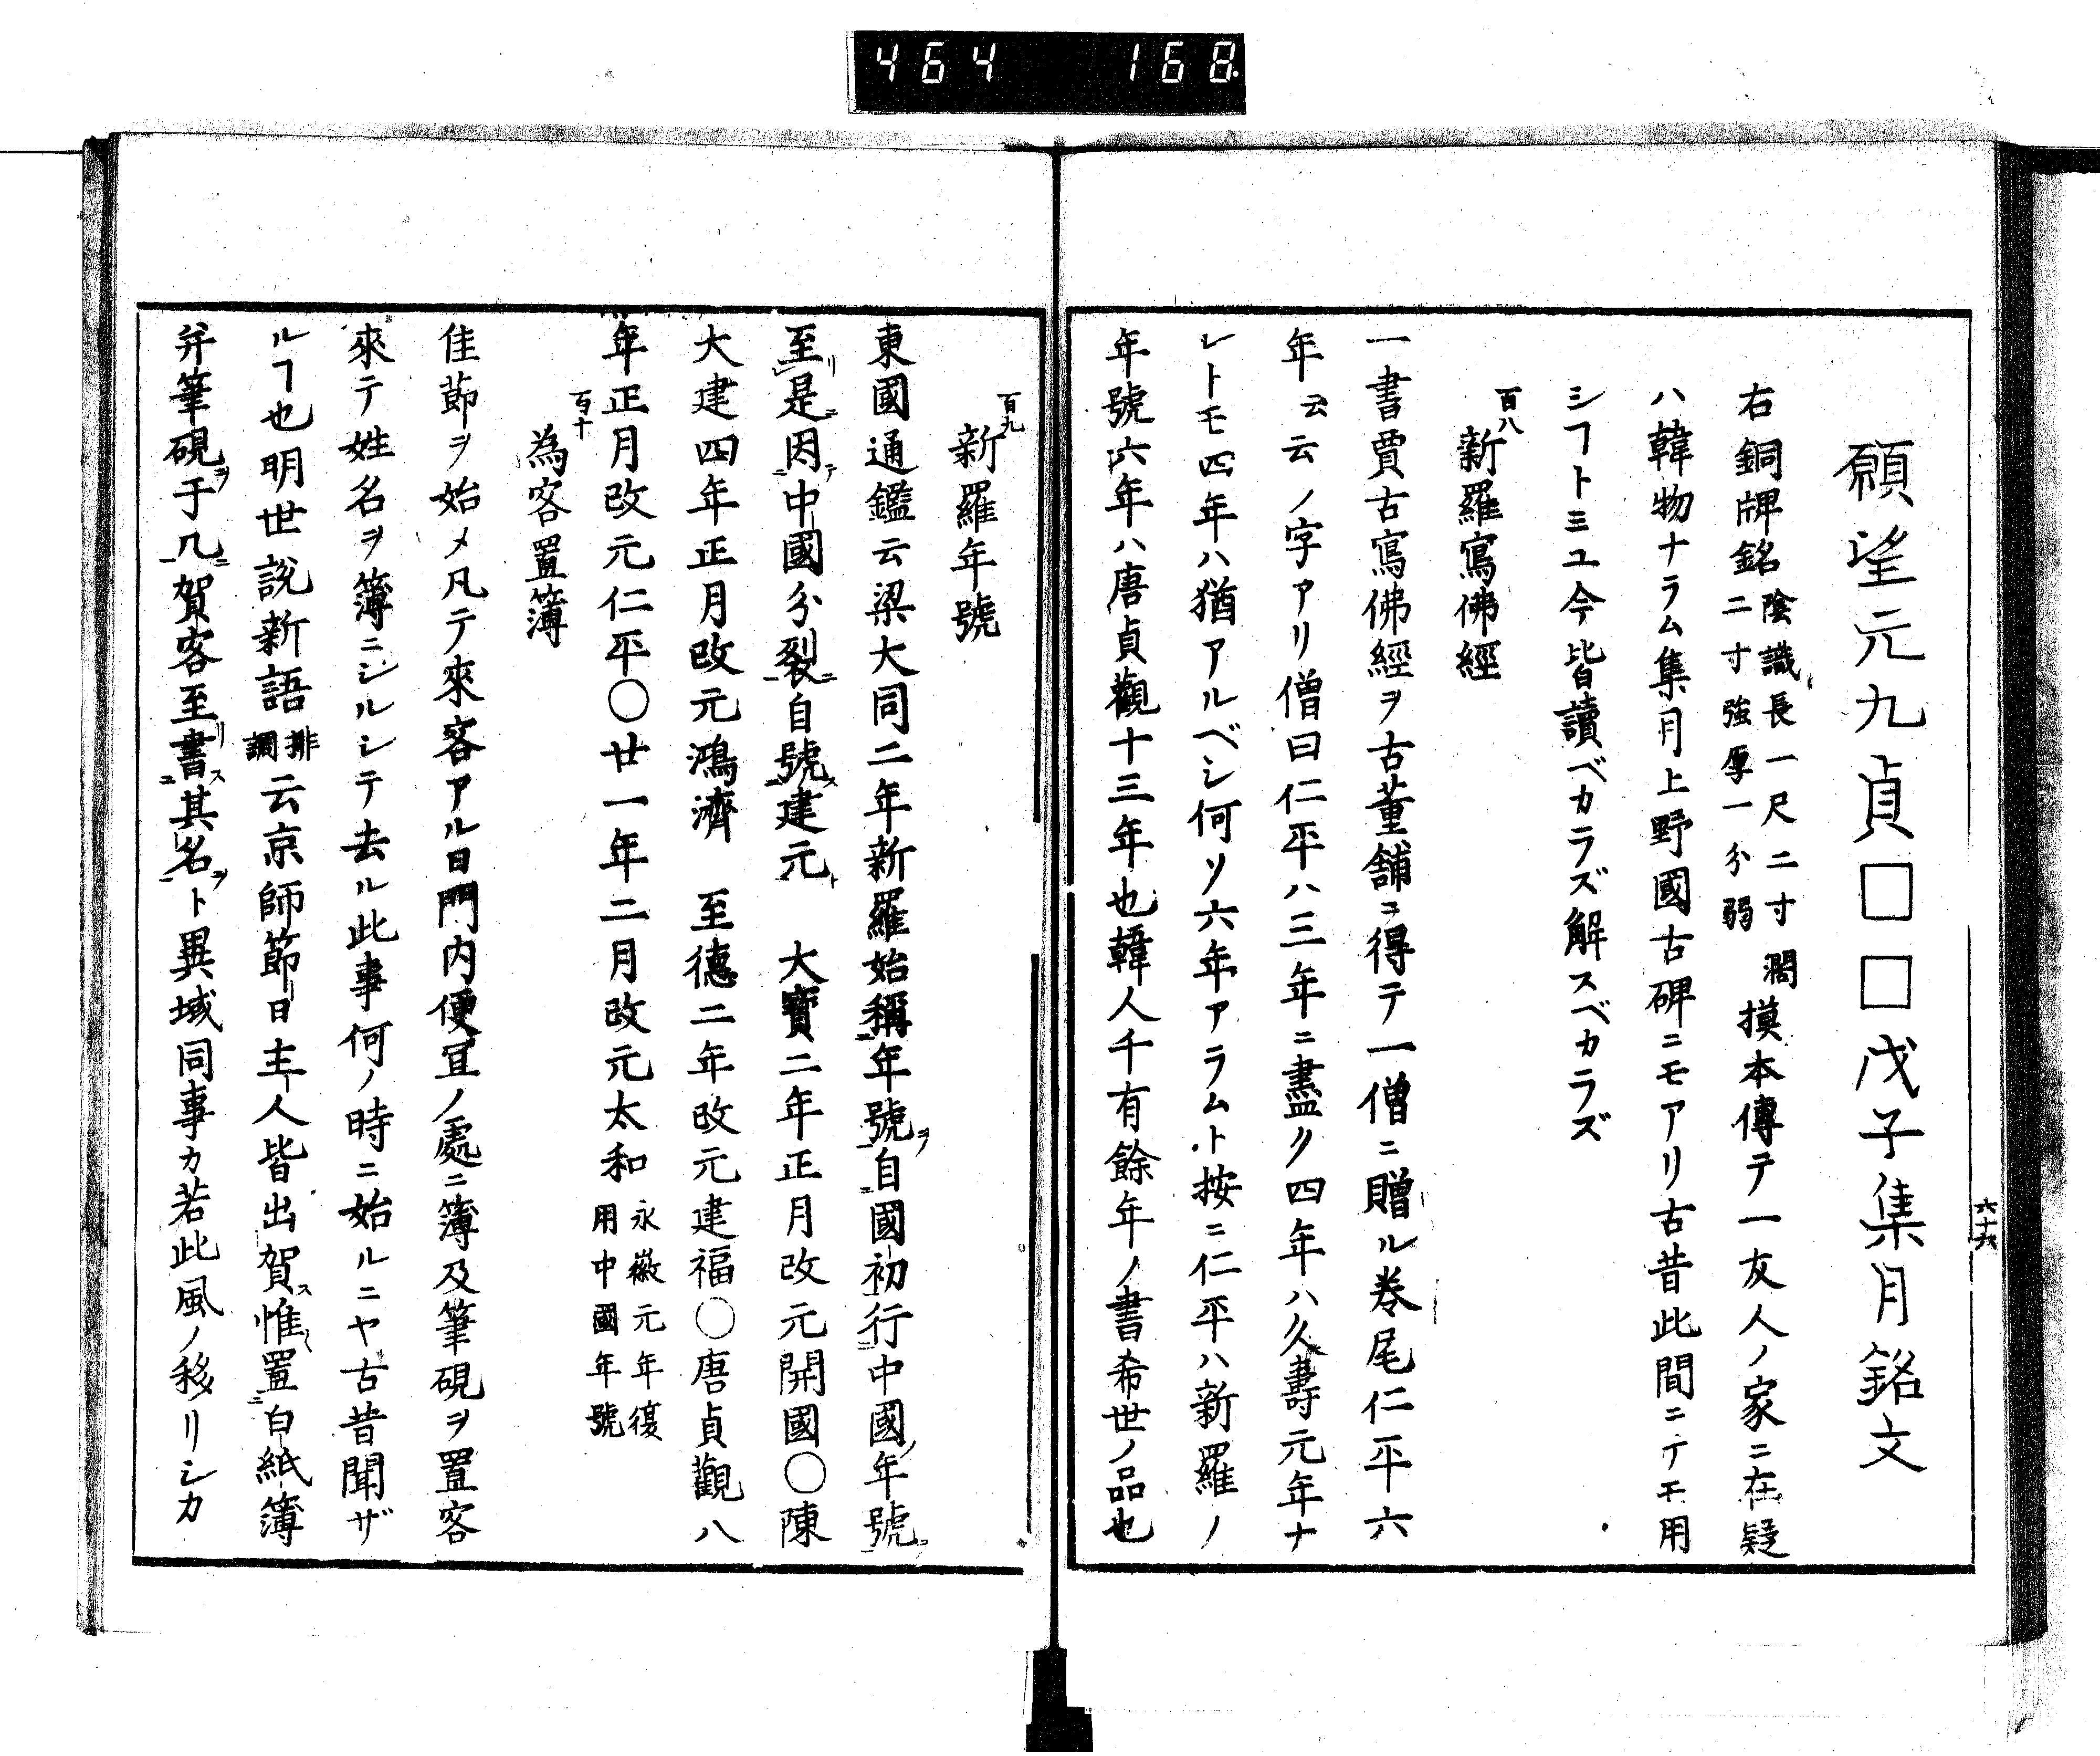 464 168
六十六
願望元九貞□□戊子集月銘文
右銅牌銘陰識長一尺二寸濶二寸強厚一分弱摸本傳テ一友人ノ家ニ在疑
ハ韓物ナラム集月上野國古碑ニモアリ古昔此間ニテモ用
シヿトミユ今皆讀ベカラズ解スベカラズ
百八
新羅寫佛經
一書賈古寫佛經ヲ古董舗ニ得テ一僧ニ贈ル巻尾仁平六
年云云ノ字アリ僧曰仁平ハ三年ニ盡ク四年ハ久壽元年ナ
レトモ四年ハ猶アルベシ何ソ六年アラムト按ニ仁平ハ新羅ノ
年號六年ハ唐貞觀十三年也韓人千有餘年ノ書希世ノ品也
百九
新羅年號
東國通鑑云梁大同二年新羅始稱年號ヲ自國初行中國ノ年號ヲ
至リ是ニ因テ中國分裂ニ自號ス建元ト 大寶二年正月改元開國○陳
大建四年正月改元鴻濟 至德二年改元建福○唐貞觀八
年正月改元仁平○廿一年二月改元太和永徽元年復用中國年號
百十
為客置簿
佳節ヲ始メ凡テ來客アル日門内便宜ノ處ニ簿及筆硯ヲ置客
來テ姓名ヲ簿ニシルシテ去ル此事何ノ時ニ始ルニヤ古昔聞ザ
ルヿ也明世説新語排調云京師節日主人皆出賀ス惟置白紙簿
并筆硯ヲ于几ニ賀客至リ書ス其名ヲト異域同事カ若此風ノ移リシカ